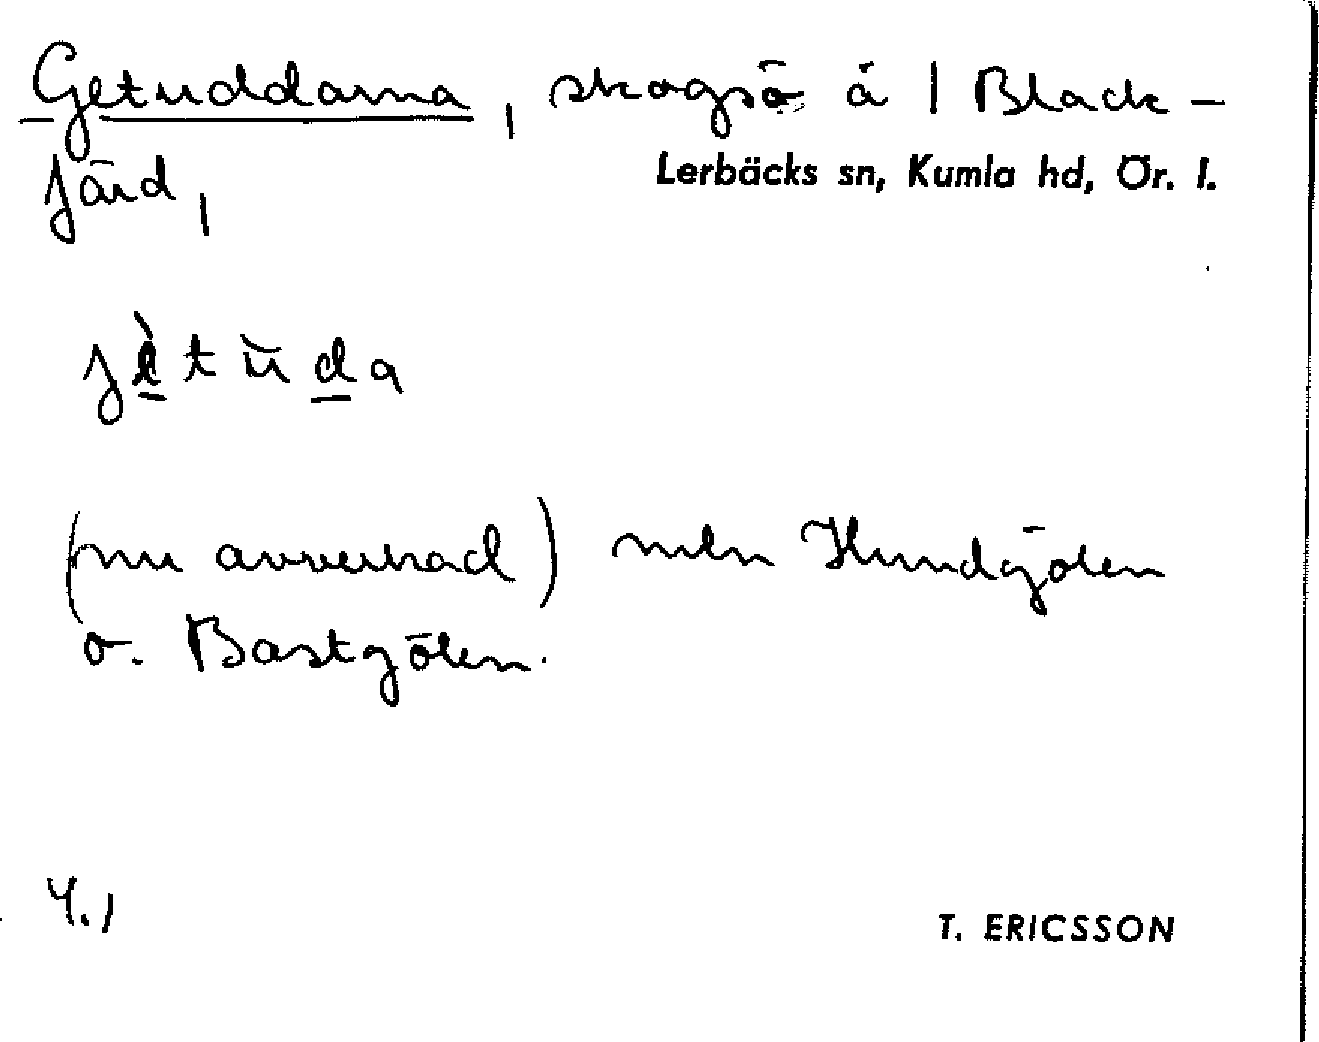 Getuddarna, skogsö å 1 Black-
Lerbäcks sn, Kumla hd, Ör. l.
färd,
jètŭda
(nu avverkad) mln Hundgölen
o. Bastgölen.
4.1
T. ERICSSON